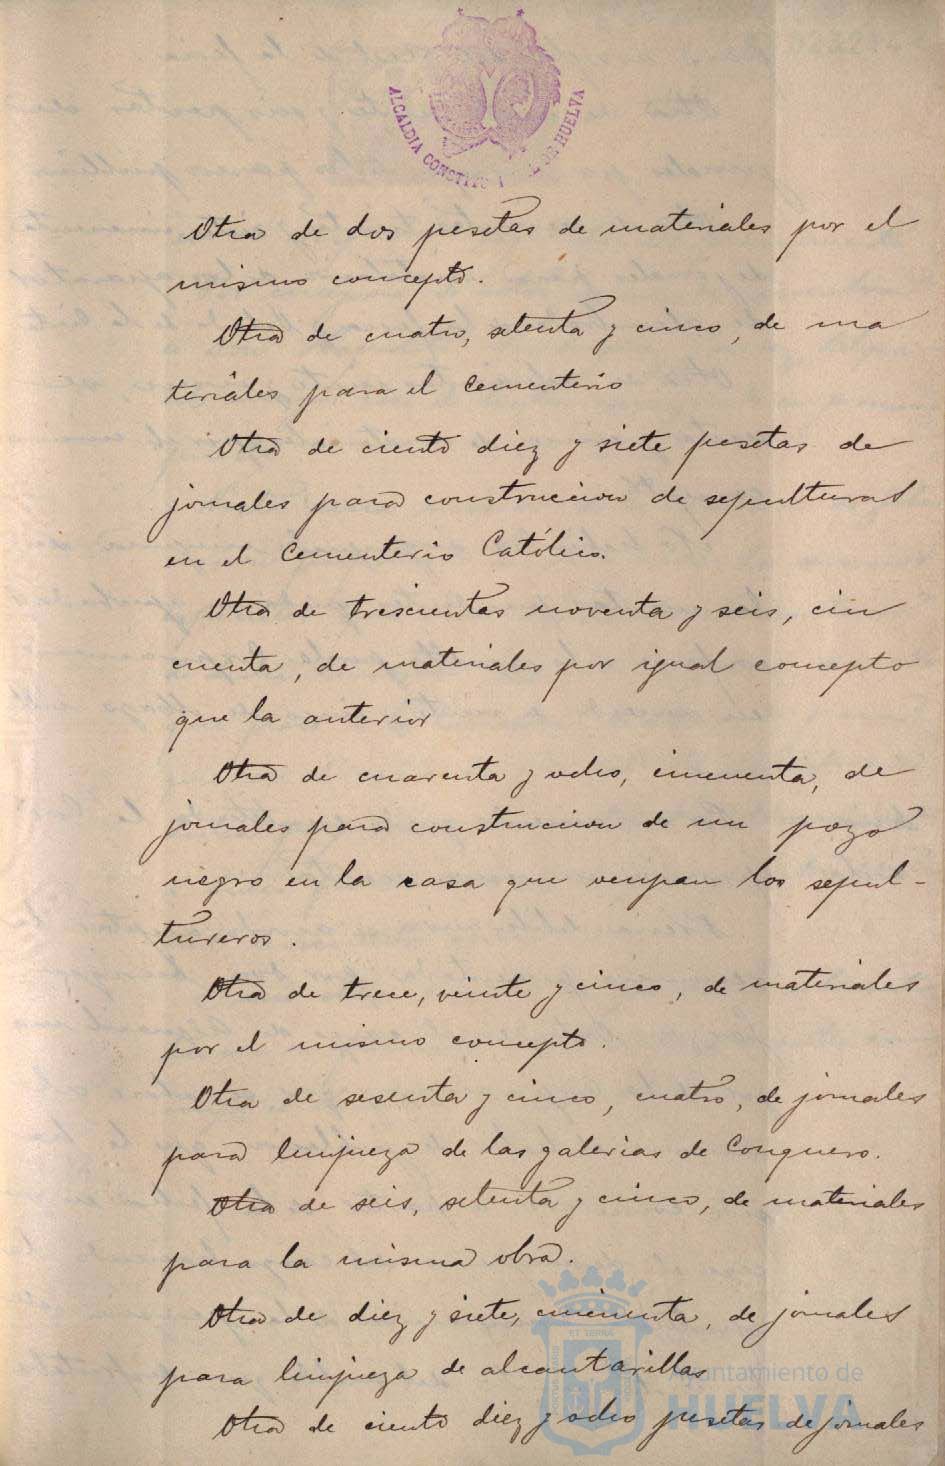 ALCALDIA CONSTITU L DE HUELVA
Otra de dos pesetas de materiales por el
mismo concepto.
Otra de cuatro, setenta y cinco, de ma
teriales para el cementerio
Otra de ciento diez y siete pesetas de
jornales para construccion de sepulturas
en el Cementerio Católico.
Otra de trescientas noventa y seis, cin
cuenta, de materiales por igual concepto
que la anterior
Otra de cuarenta y ocho, cincuenta, de
jornales para construccion de un pozo
negro en la casa que ocupan los sepul-
tureros.
Otra de trece, veinte y cinco, de materiales
por el mismo concepto.
Otra de sesenta y cinco, cuatro, de jornales
para limpieza de las galerias de Conquero.
Otra de seis, setenta y cinco, de materiales
para la misma obra.
Otra de diez y siete, cincuenta, de jornales
para limpieza de alcantarillas
Ayuntamiento de
HUELVA
Otra de ciento diez y ocho pesetas de jornales